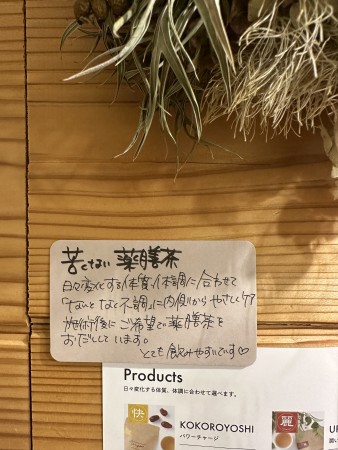 苦くない 薬膳茶
日々変化する体質、体調に合わせて
「なんとなく不調」に内側からやさしくケア
施術後にご希望で薬膳茶を
お出ししています。
とても飲みやすいです♡
Products
日々変化する体質、体調に合わせて選べます。
快
KOKOROYOSHI
パワーチャージ
麗